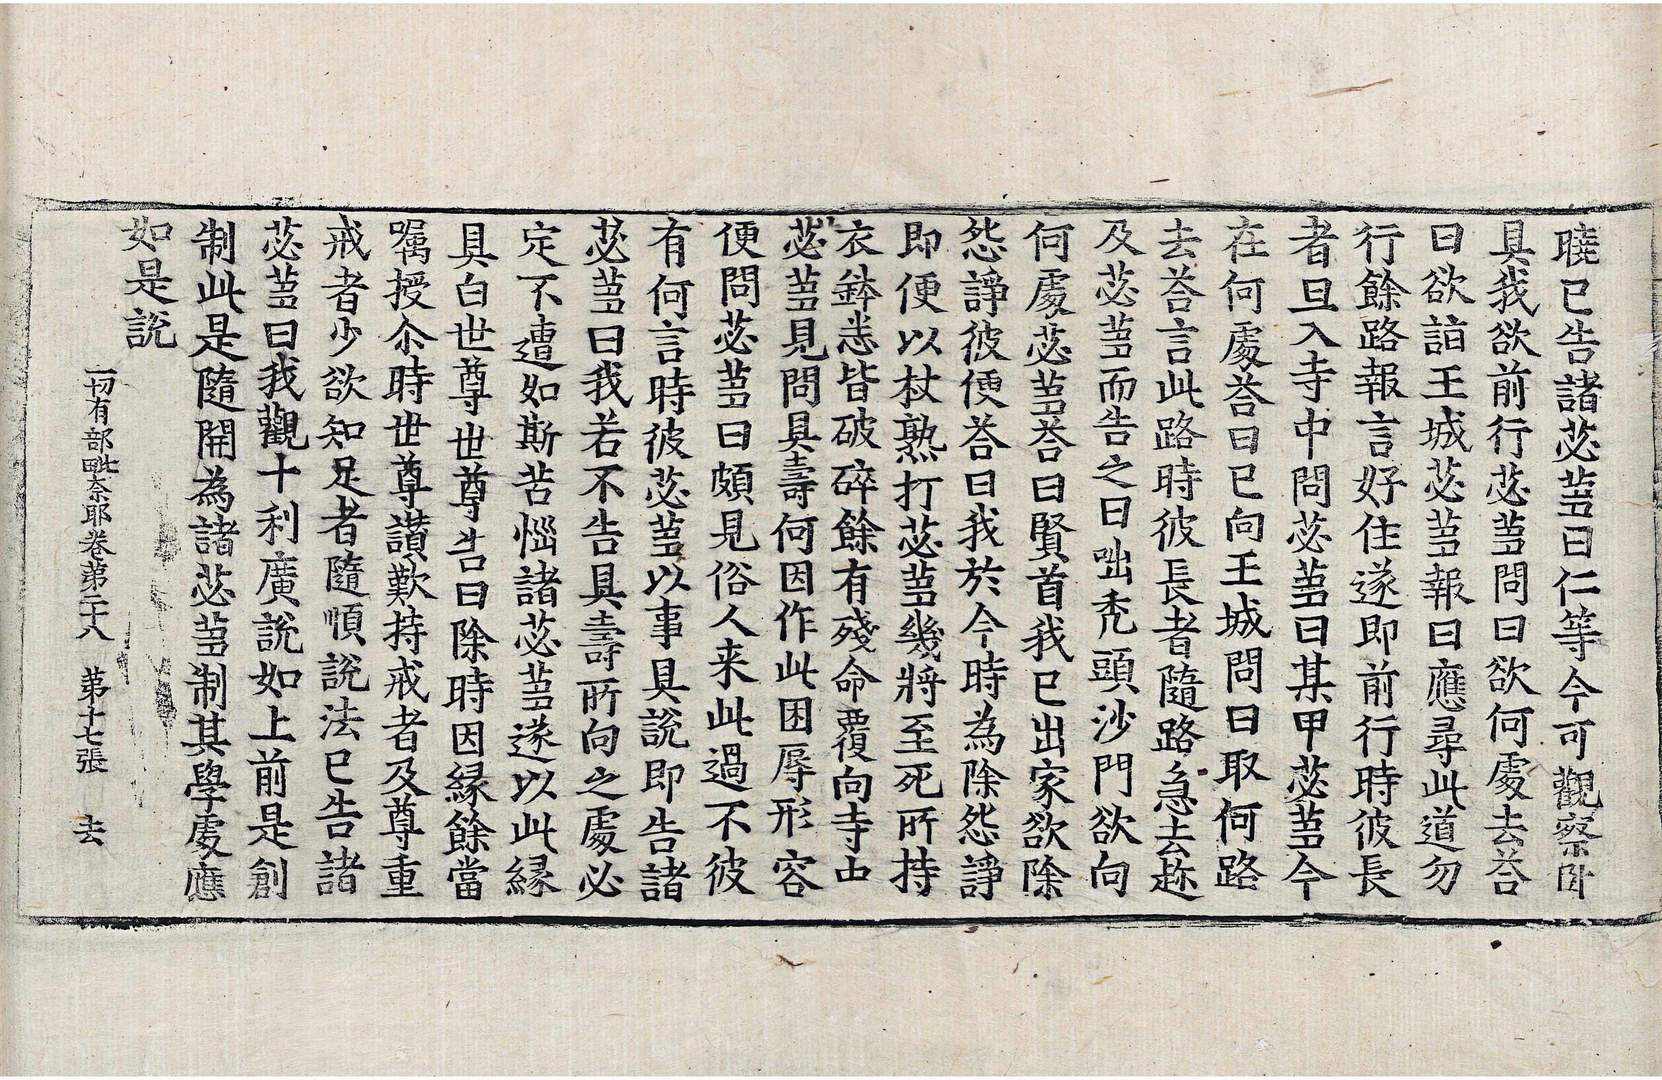 曉已告諸苾蒭曰仁等今可觀察卧
具我欲前行苾蒭問曰欲何處去荅
曰欲詣王城苾蒭報曰應尋此道勿
行餘路報言好住遂即前行時彼長
者旦入寺中問苾蒭曰某甲苾蒭今
在何處荅曰已向王城問曰取何路
去荅言此路時彼長者隨路急去趂
及苾蒭而告之曰咄秃頭沙門欲向
何處苾蒭荅曰賢首我已出家欲除
怨諍彼便荅曰我於今時為除怨諍
即便以杖熟打苾蒭幾將至死所持
衣鉢悉皆破碎餘有殘命覆向寺中
苾蒭見問具壽何因作此困辱形容
便問苾蒭曰頗見俗人来此過不彼
有何言時彼苾蒭以事具説即告諸
苾蒭曰我若不告具壽所向之處必
定不遭如斯苦惱諸苾蒭遂以此縁
具白世尊世尊告曰除時因縁餘當
囑授尒時世尊讃歎持戒者及尊重
戒者少欲知足者隨順説法已告諸
苾蒭曰我觀十利廣説如上前是創
制此是隨開為諸苾蒭制其學處應
如是説
一切有部毗奈耶卷第二十八 第十七張 去